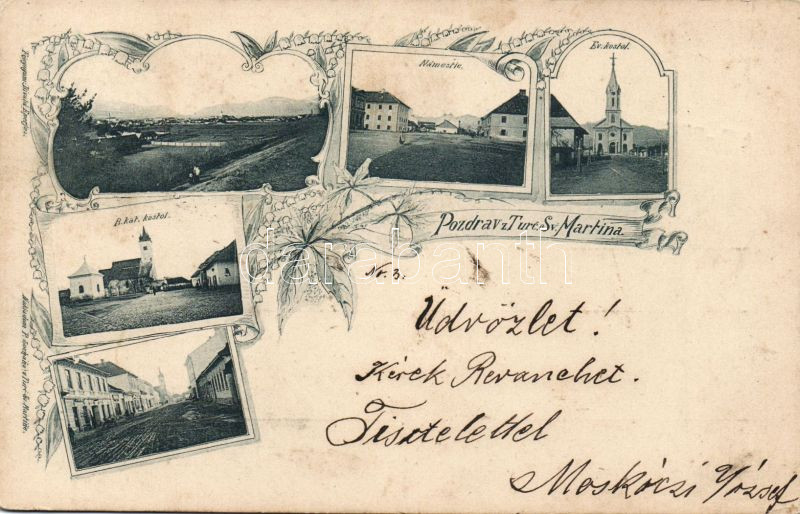 Ev. kostol.
Námestie.
R. kat. kostol.
Pozdrav z Turč. Sv. Martina.
darabanth
No. 3.
Üdvözlet!
Kérek Revanchet.
Tisztelettel
Moskóczi József